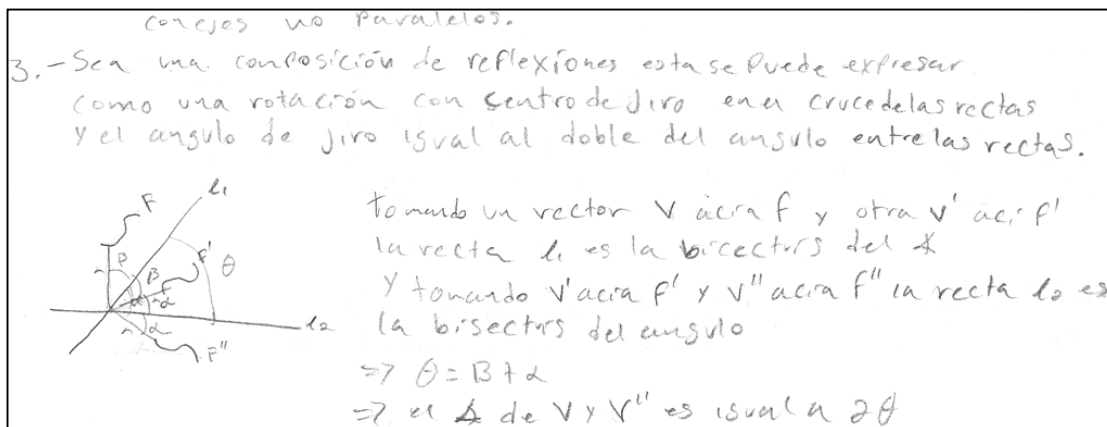 conejes no paralelos.
3.- Sea una composición de reflexiones esta se puede expresar
como una rotación con sentro de jiro en el cruce de las rectas
y el angulo de jiro igual al doble del angulo entre las rectas.
l1
F
β
β
F'
θ
α
α
l2
F''
tomando un vector V acia f y otra v' aci f'
la recta l1 es la bicectris del ∡
y tomando v' acia f' y v'' acia f'' la recta l2 es
la bisectris del angulo
=> θ = β + α
=> el ∡ de V y V'' es igual a 2θ